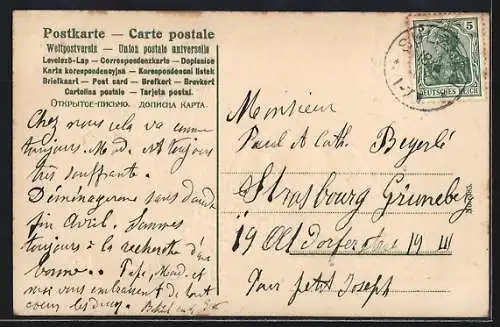 Postkarte — Carte postale
Weltpostverein — Union postale universelle
Levelező-Lap — Correspondenzkarte — Dopisnice
Karta korespondencyjna — Korespondenční listek
Briefkaart — Post card — Brefkort — Brevkort
Cartolina postale — Tarjeta postal.
Открытое-письмо. Дописна карта.
5
DEUTSCHES REICH
Chez nous cela va comme
toujours. Mad. est toujours
très souffrante.
Déménagerons sans doute
fin Avril. Sommes
toujours à la recherche d'une
bonne.. Papa, Mad. et
moi vous embrassent de tout
coeur les deux.
Monsieur
Paul A Cath. Beyerlé
Strasbourg Grüneberg
19 Altdorferstrasse 19 III
Pour petit Joseph